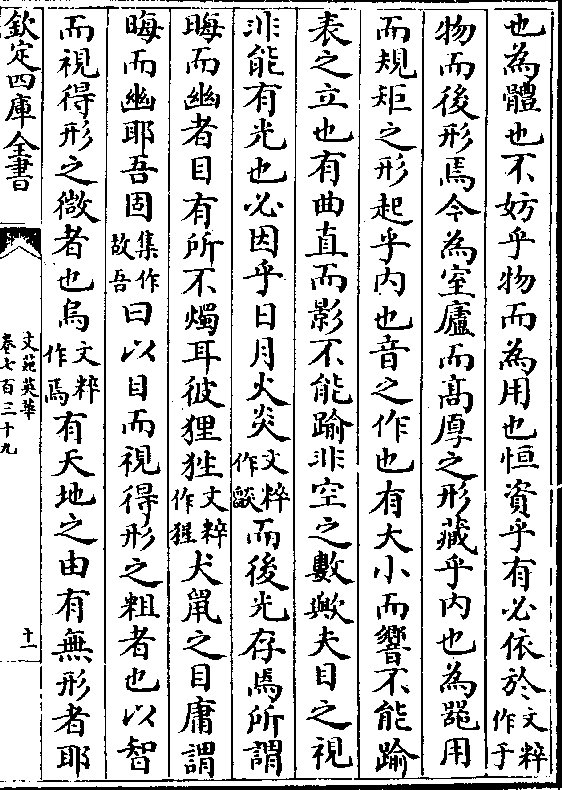 也為體也不妨乎物而為用也恒資乎有必依於文粹作乎
物而後形焉今為室廬而髙厚之形藏乎内也為噐用
而規矩之形起乎内也音之作也有大小而響不能踰
表之立也有曲直而影不能踰非空之數歟夫目之視
非能有光也必因乎日月火炎文粹作燄而後光存焉所謂
晦而幽者目有所不燭耳彼狸狌文粹作猩犬䑕之目庸謂
晦而幽耶吾固集作故吾曰以目而視得形之粗者也以智
而視得形之微者也烏文粹作焉有天地之由有無形者耶
欽定四庫全書
文苑英華
卷七百三十九
十一